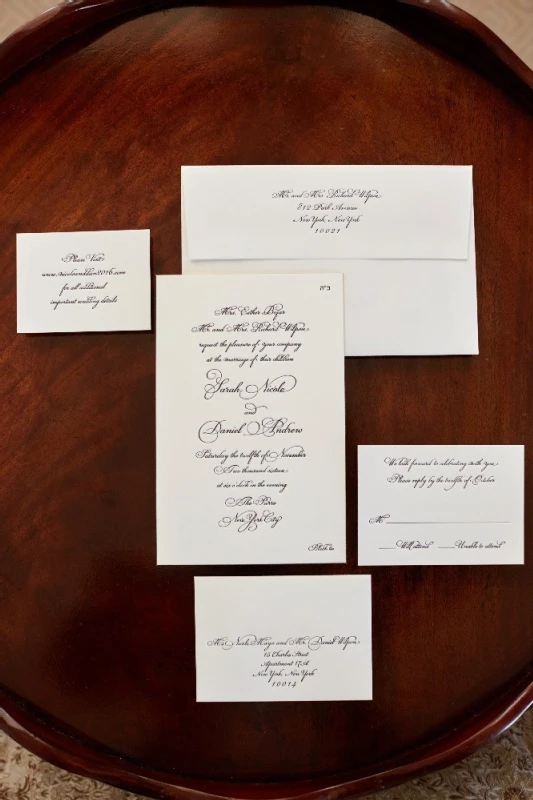 Mr. and Mrs. Richard Wilpon
812 Park Avenue
New York, New York
10021
Please Visit
for all additional
important wedding details
Mrs. Esther
Mr. and Mrs. Richard Wilpon
request the pleasure of your company
at the marriage of their children
Sarah Nicole
and
Daniel Andrew
Saturday the twelfth of November
Two thousand sixteen
at six o'clock in the evening
The Pierre
New York City
Black tie
We look forward to celebrating with you
Please reply by the twelfth of October
M
Will attend Unable to attend
and Mr. Daniel Wilpon
15 Charles Street
Apartment
New York, New York
10014